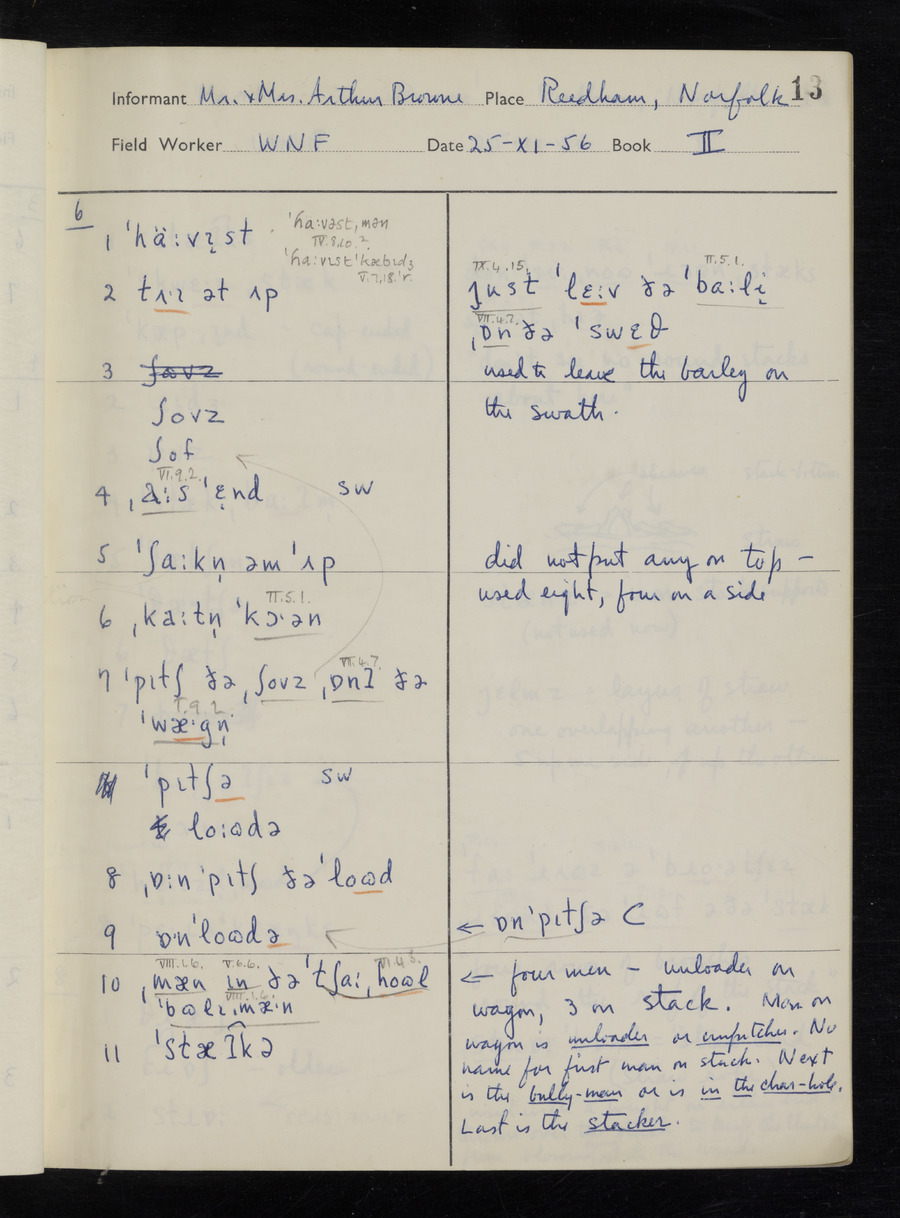 Informant Mr. & Mrs. Arthur Browne Place Reedham, Norfolk 13
Field Worker WNF Date 25-XI-56 Book II
6
1 ˈhä:vɪst
ˈha:vəst,mən
IV.8.10.2.
ˈha:vɪstˈkæbɪdʒ
V.7.18.ˈr.
2 tʌɪ ət ʌp
3 ʃɷvz
ʃovz
ʃof
VI.9.2.
4 ˌa:sˈɛnd sw
5 ˈʃa:kn̩ əmˈʌp
II.5.1.
6 ˌka:tn̩ ˈkɔ·ən
VII.4.7.
7 ˈpɪtʃ ðə ˌʃovz ˌɒnɪ ðə
I.9.2.
ˈwæ·gn̩
ˈpɪtʃə sw
lo:ɷdə
8 ˌɒ:nˈpɪtʃ ðəˈloɷd
9 ɒnˈloɷdə
VIII.1.6. V.6.6. VI.4.3.
10 ˌmæn ɪn ðəˈtʃa:ˌhoɷl
VIII.1.6.
ˈbɷlɪˌmæ·n
11 ˈstæɪkə
IX.4.15. II.5.1.
just ˈlɛ:v ðəˈba:lɪ
VII.4.2.
ˌɒn ðə ˈswɛθ
used to leave the barley on
the swath.
did not put any on top –
used eight, four on a side
← ɒnˈpɪtʃə C
← four men – unloader on
wagon, 3 on stack. Man on
wagon is unloader or unpitcher. No
name for first man on stack. Next
is the bully-man or is in the char-hole.
Last is the stacker.